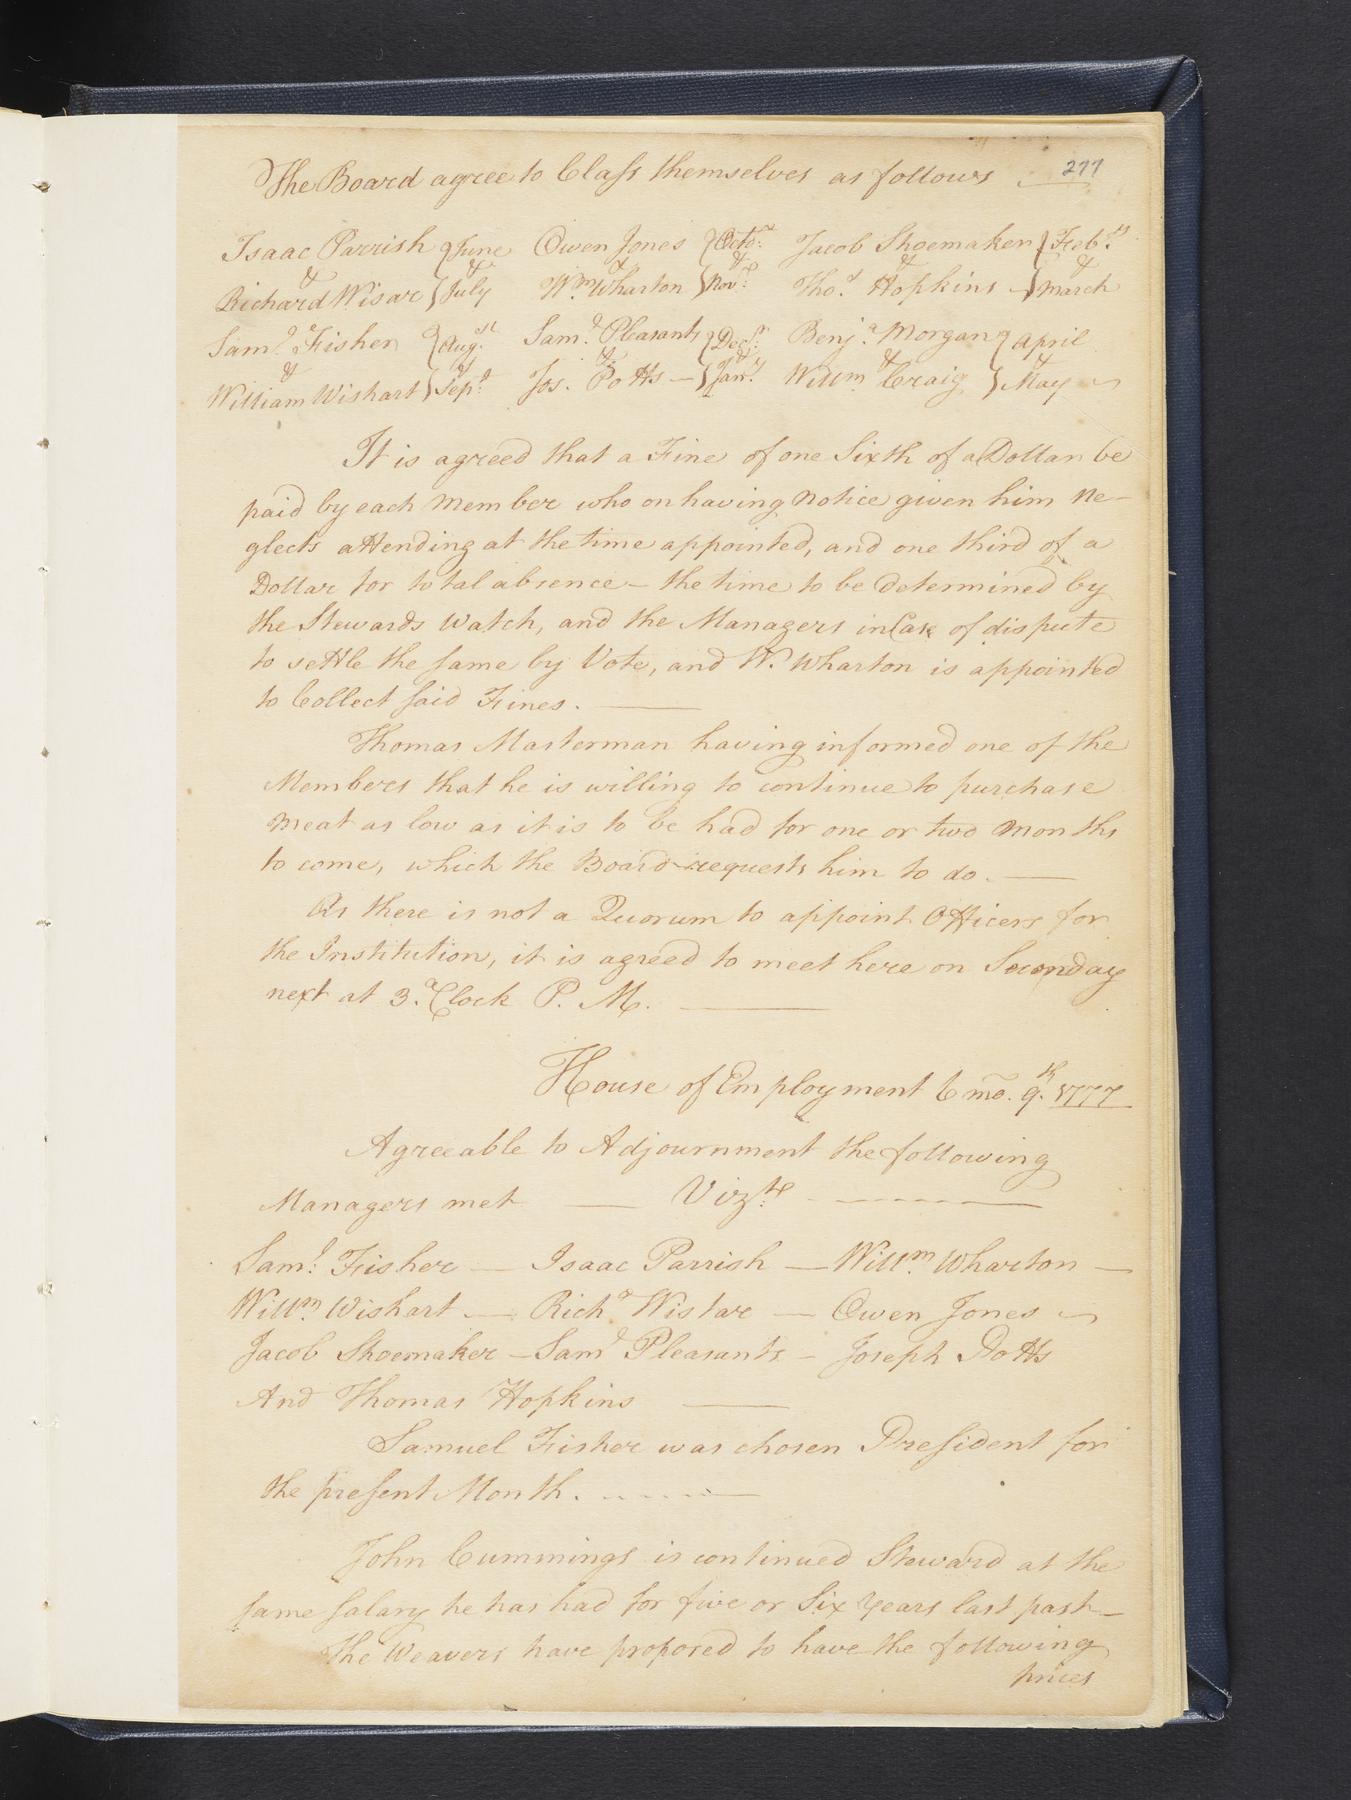 The Board agree to Class themselves as follows 277
Isaac Parrish } June Owen Jones } Octor. Jacob Shoemaker } Feby.
& & & & & &
Richard Wisar } July Wm. Wharton } Novr. Thos. Hopkins } March
Saml. Fisher } Augst. Saml. Pleasants } Decr. Benja. Morgan } April
& & & & & &
William Wishart } Sepr. Jos. Potts } Jany. Willm Craig } May
It is agreed that a Fine of one Sixth of a Dollar be
paid by each Member who on having Notice given him ne-
glects attending at the time appointed, and one third of a
Dollar for total absence – the time to be determined by
the Stewards Watch, and the Managers in Case of dispute
to settle the same by Vote, and W. Wharton is appointed
to Collect said Fines.
Thomas Masterman having informed one of the
Members that he is willing to continue to purchase
Meat as low as it is to be had for one or two Months
to come, which the Board requests him to do.
As there is not a Quorum to appoint Officers for
the Institution, it is agreed to meet here on Seconday
next at 3. a Clock P. M.
House of Employment 6 mo. 9th. 1777
Agreeable to Adjournment the following
Managers met — Vizt.
Saml. Fisher — Isaac Parrish — Willm. Wharton —
Willm. Wishart — Richd. Wistar — Owen Jones
Jacob Shoemaker – Saml Pleasants – Joseph Potts
And Thomas Hopkins
Samuel Fisher was chosen President for
the present Month.
John Cummings is continued Steward at the
same salary he has had for five or Six Years last past –
The Weavers have proposed to have the following
prices